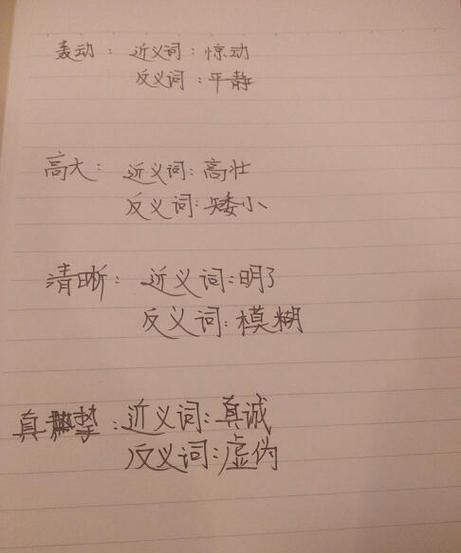 轰动：近义词：惊动
反义词：平静
高大：近义词：高壮
反义词：矮小
清晰：近义词：明了
反义词：模糊
真挚：近义词：真诚
反义词：虚伪